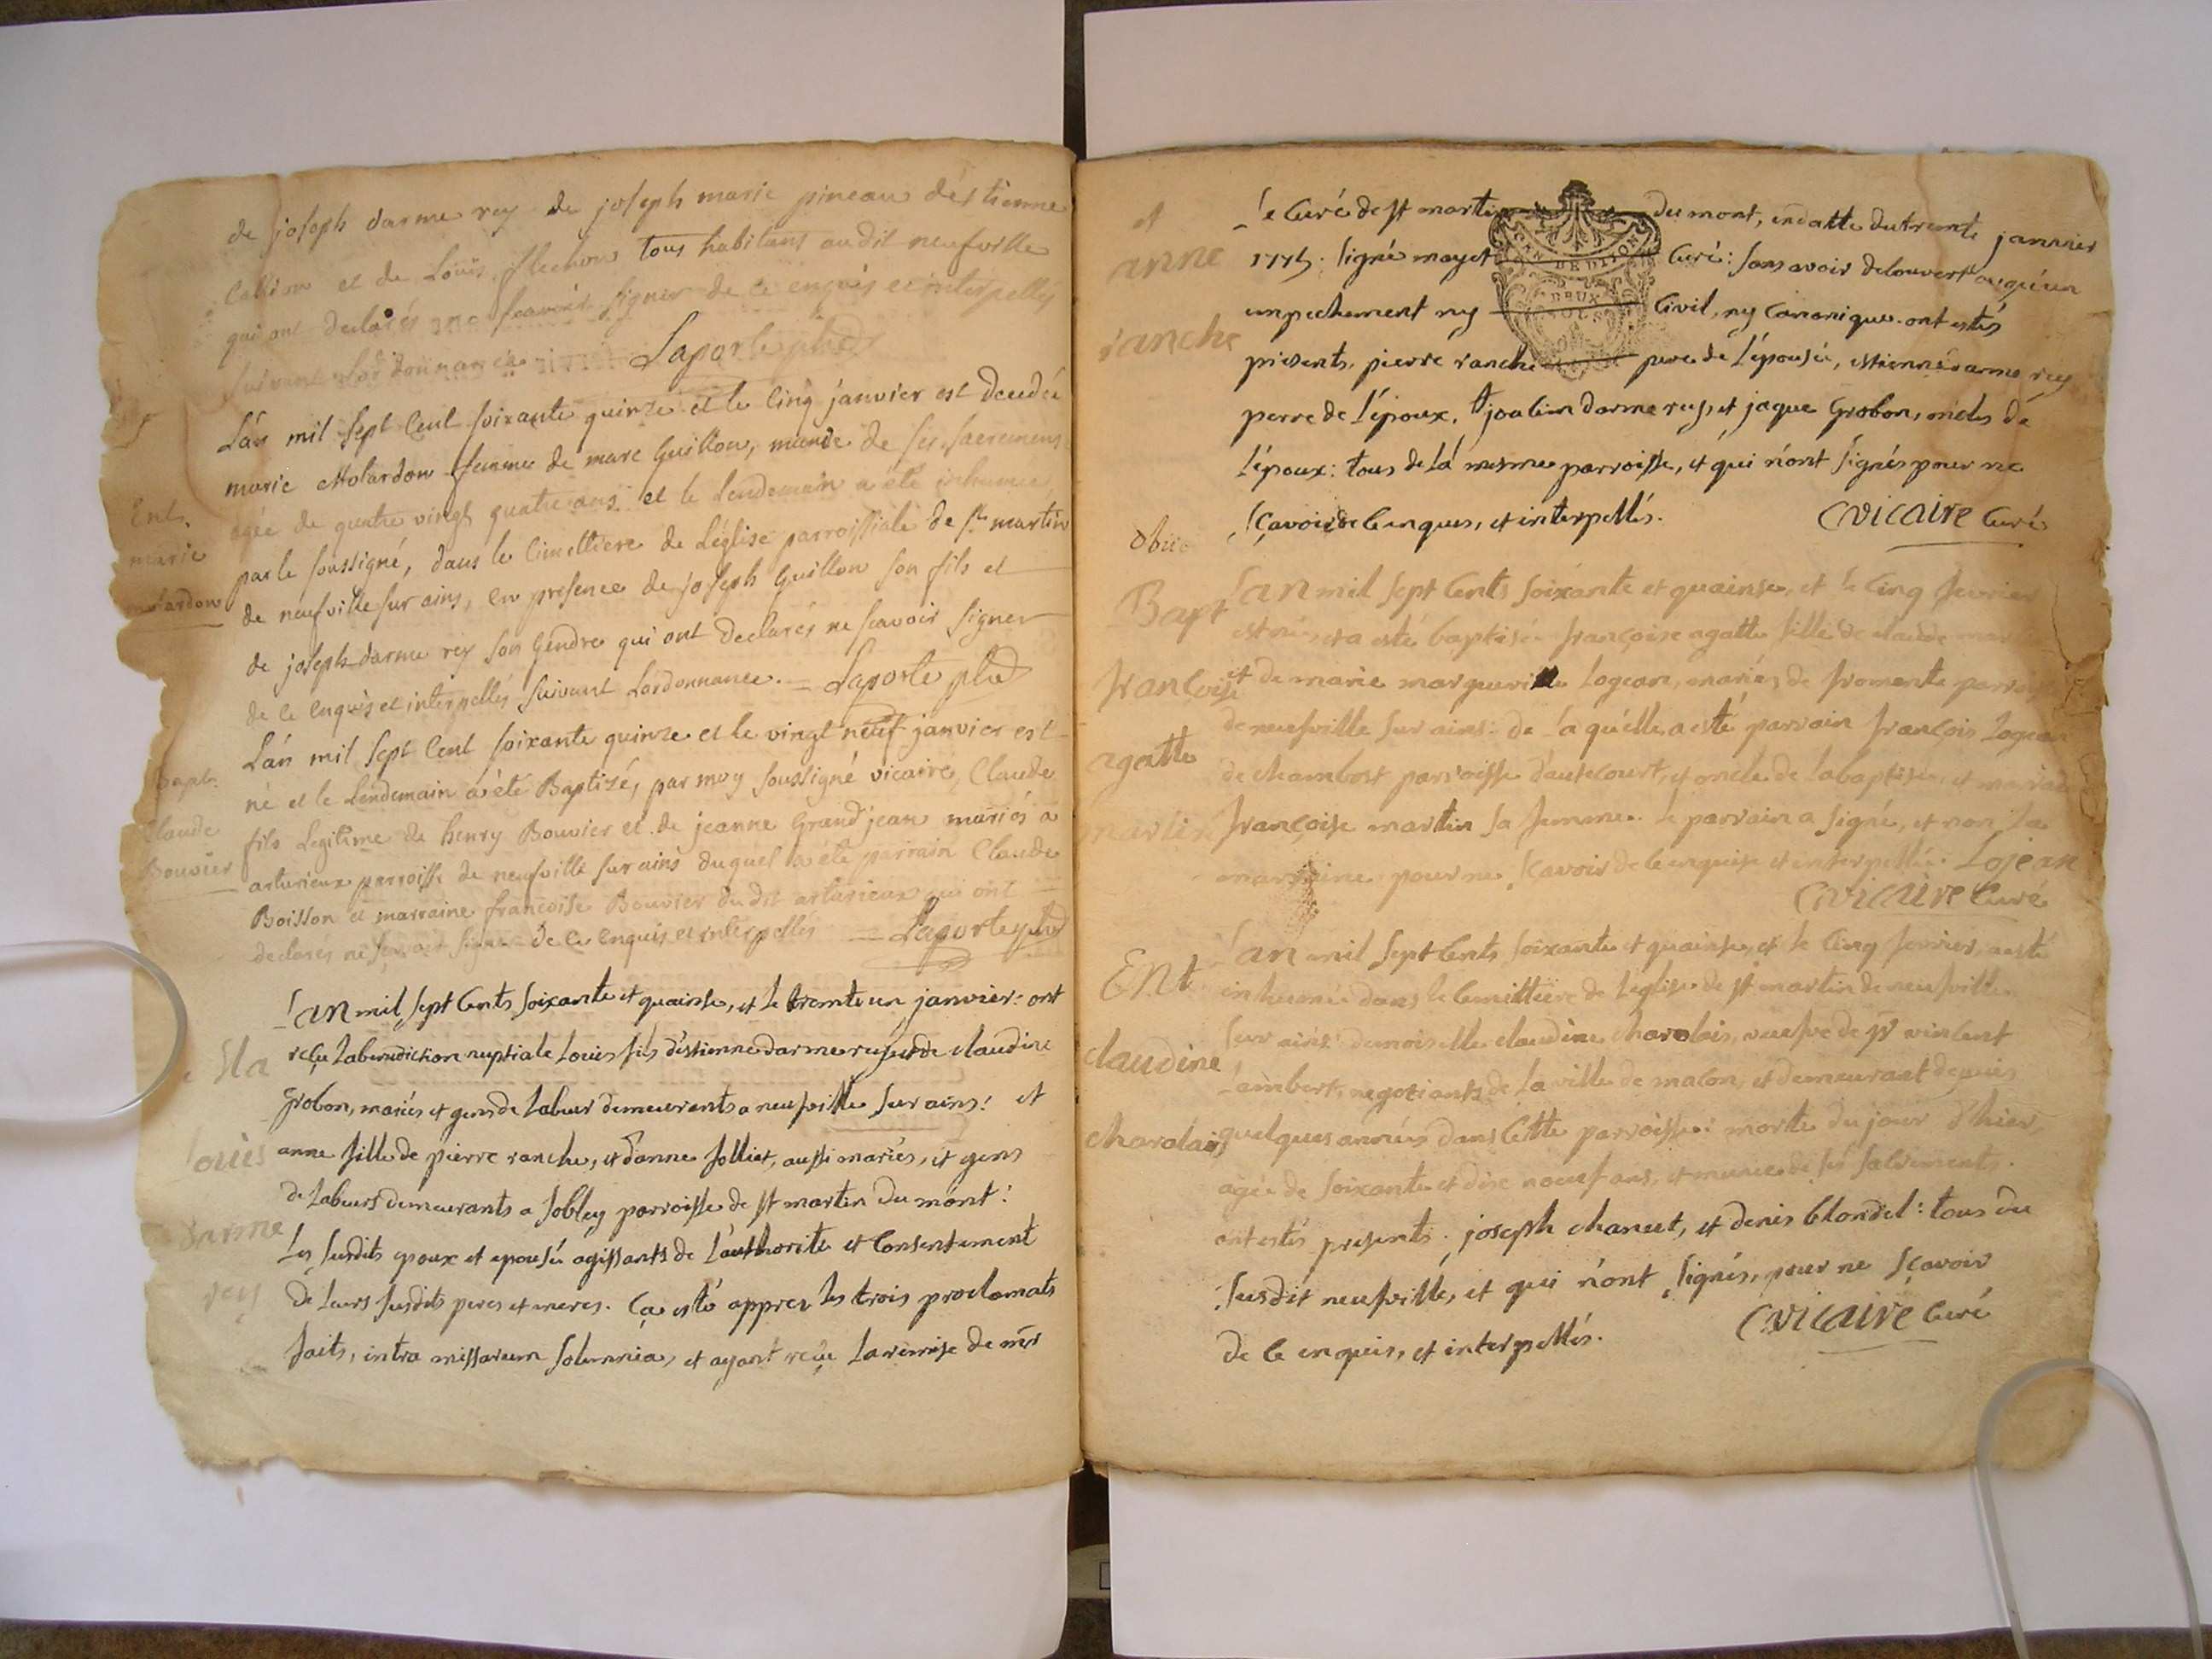 de joseph darme rey de joseph marie pineau d'éstienne
Callion et de Louis flechon tous habitans audit neufville
qui ont declarés ne scavoir signer de ce enquis et interpellés
suivant lordonnance Laporte
Lán mil sept Cent soixante quinze et le Cinq janvier est decedée
marie Molardon femme de marc Guillon, munie de ses sacremens
agée de quatre vingt quatre ans et le Lendemain a été inhumée
par le soussigné, dans le Cimettiere de Léglise parroissiale de st martin
de neufville sur ains, en presence de joseph Guillon son fils et
de joseph darme rey son Gendre qui ont declarés ne scavoir signer
de ce enquis et interpellés suivant Lordonnance. Laporte
Ent.
marie
molardon
Lán mil sept Cent soixante quinze et le vingt neuf janvier est
né et le Lendemain à été Baptizé, par moy soussigné vicaire, Claude
fils Legitime de henry Bouvier et de jeanne Grandjean mariés à
arturieux parroisse de neufville sur ains duquel à été parrain Claude
Boisson et marraine françoise Bouvier dudit arturieux qui ont
declarés ne scavoir signer de ce enquis et interpellés Laporte
Bapt.
Claude
Bouvier
Lan mil sept Cents soixante et quainse, et le tremte un janvier: ont
reçu Labenediction nuptiale Louis fils d'éstienne darme rey et de claudine
Grobon, mariés et gens de Labeur demeurants a neufville sur ains: et
anne fille de pierre ranche, et d'anne Jolliet, aussi mariés, et gens
de Labeurs demeurants a Jobley parroisse de st martin du mont:
Les susdits epoux et epousée agissants de L'authorité et Consentement
de Leurs susdits peres et meres. Ca esté apprez les trois proclamats
faits, intra missarum solumnia, et ayant reçu La remise de mr
Louis
darme
rey
et
anne
ranche
Le Curé de st martin du mont, en datte du tremte janvier
1775. signé mayet Curé: sans avoir decouvert auqu'un
empechement ny Civil, ny Canonique. ont estés
presents, pierre ranche pere de L'épousée, estienne darme rey
perre de L'époux, joachim darme rey, et jaque Grobon, oncles de
L'époux: tous de La mesme parroisse, et qui n'ont signés pour ne
sçavoir de ce enques, et interpellés. Cvicaire Curé
GEN DE DIJON
DEUX
SOLS
Bapt
françoise
agatte
martin
Lan mil sept Cents soixante et quainse, et le Cinq fevrier
est née, et a esté baptisée françoise agatte fille de claude martin
et de marie marguerite Logean, mariés de fromente parroisse
de neufville sur ains: de La quelle a esté parrain françois Logean
de chambost parroisse d'autecourt, et oncle de La baptisée, et marraine
françoise martin sa femme. Le parrain a signé, et non La
marraine pour ne sçavoir de ce enquise et interpellée. Lojean
Cvicaire Curé
Ent
claudine
charolais
Lan mil sept Cents soixante et quainse, et le Cinq fevrier, a esté
inhumée dans le Cemittiere de Léglise de st martin de neufville
sur ains demoiselle claudine charolais, veufve de sr vincent
Lambert, negotiants de La ville de macon, et demeurant depuis
quelques années dans Cette parroisse: morte du jour d'hier,
agée de soixante et dix nouef ans, et munie de ses sacrements.
ont estés presents. joseph chanut, et denis blondel: tous du
susdit neufville, et qui n'ont signés, pour ne sçavoir
de ce enquis, et interpellés. Cvicaire Curé